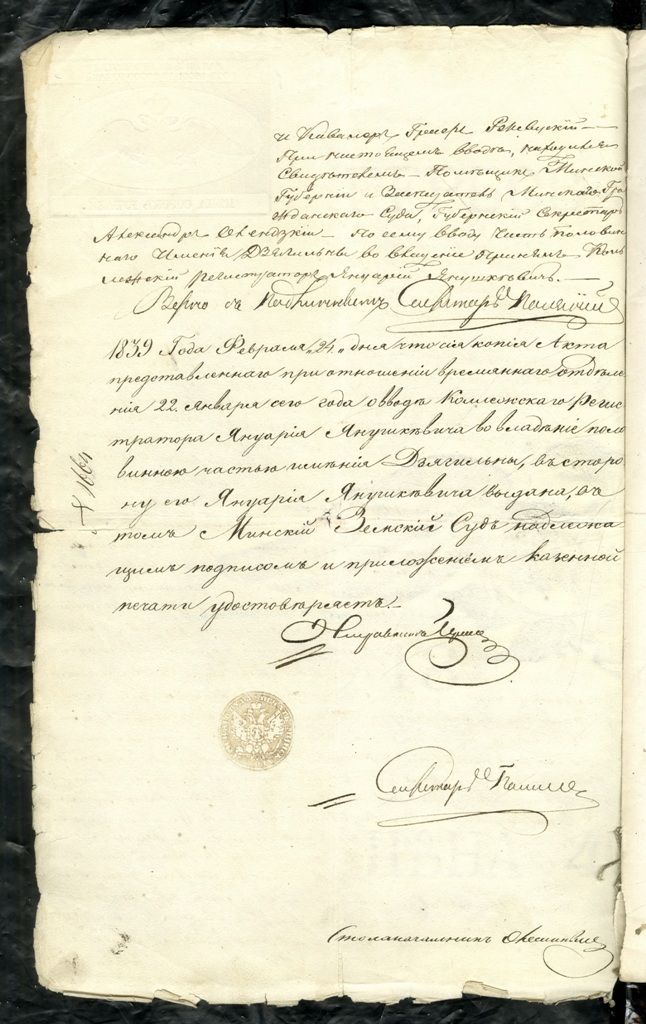 и Кавалеръ Грегоръ Раковуцкій
При настоящемъ вводѣ, находился
Свидѣтелемъ Помѣщикъ Минской
Губерніи и Засѣдатель Минскаго Гра
жданскаго Суда, Губернскій Секретарь
Александръ Свендзкій По сему вводу часть половин
наго Имѣнія Дзягильны во владѣніе принялъ Кол
лежскій регистраторъ Януарій Янушкѣвичъ.
Вѣрно съ Подлиннымъ Секретарь
1839 Года Февраля „24„ дня что сія копія Акта
представленнаго при отношеніи временнаго отдѣле
нія 22 Января сего года о вводѣ Коллежскаго Регис
тратора Януарія Янушкѣвича во владѣніе поло
винною частью имѣнія Дзягильны, въ сторо
ну его Януарія Янушкѣвича выдана, въ
томъ Минскій Земскій Судъ надлежа
щимъ подписомъ и приложеніемъ казенной
печати удостовѣряетъ.
1664
Исправникъ
Секретарь
Столоначальникъ